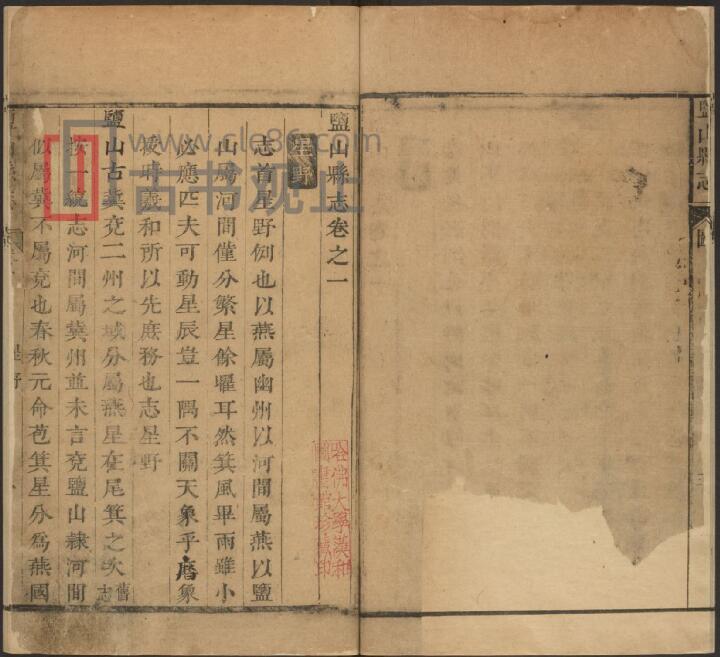 鹽山縣志
鹽山縣志卷之一
星野
志首星野例也以燕屬幽州以河間屬燕以鹽
山屬河間僅分繁星餘曜耳然箕風畢雨雖小
必應匹夫可動星辰豈一隅不關天象乎曆象
授時羲和所以先庶務也志星野
鹽山古冀兗二州之域分屬燕星在尾箕之次舊志
按一統志河間屬冀州並未言兗鹽山隸河間
似屬冀不屬兗也春秋元命苞箕星分為燕國
星野
哈佛大學漢和
圖書館珍藏印
www.clc86.com
古书观止